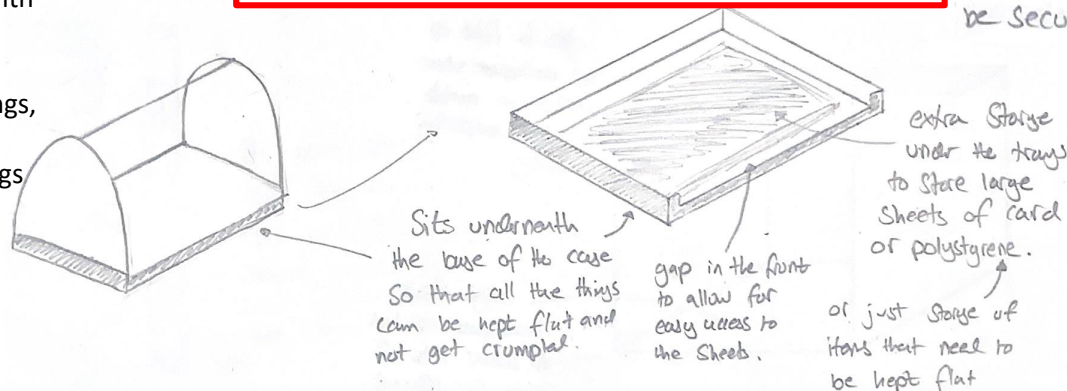 ith
ngs,
gs
be secu
Sits underneath
the base of the case
So that all the things
can be kept flat and
not get crumpled.
gap in the front
to allow for
easy access to
the Sheets.
extra Storge
under the trays
to Store large
Sheets of card
or polystyrene.
or just Storge of
items that need to
be kept flat